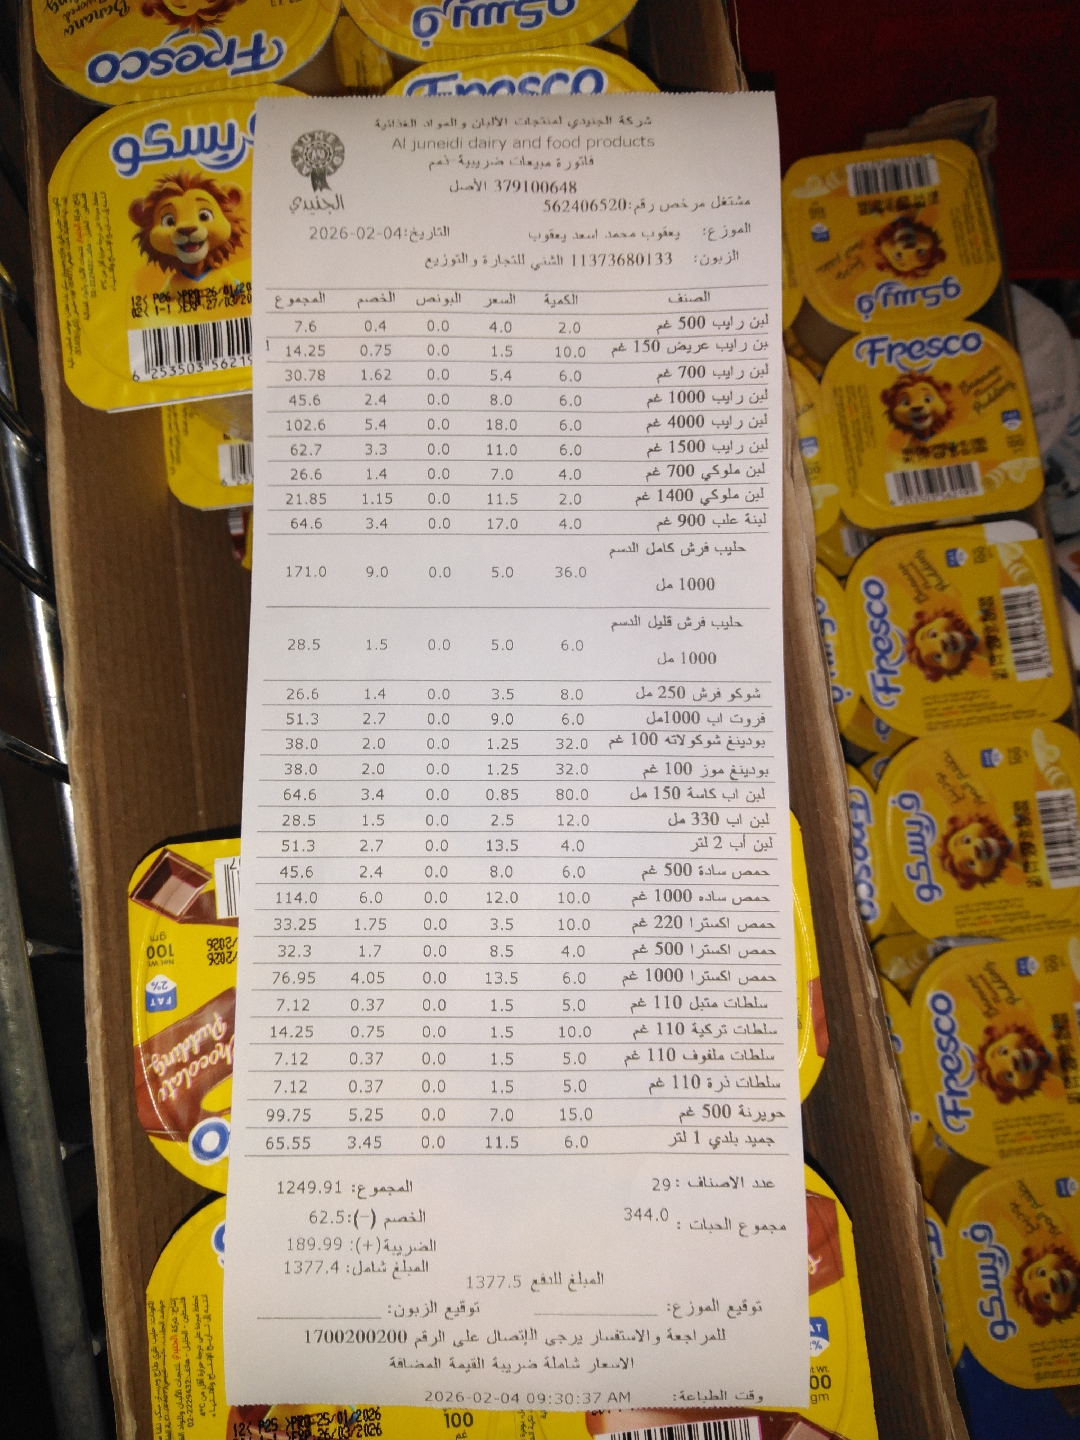 شركة الجنيدي لمنتجات الألبان والمواد الغذائية
Al juneidi dairy and food products
فاتورة مبيعات ضريبية-ذمم
379100648 الأصل
مشتغل مرخص رقم:562406520
الجنيدي
الموزع: يعقوب محمد اسعد يعقوب التاريخ:2026-02-04
الزبون: 11373680133 الشني للتجارة والتوزيع
الصنف الكمية السعر البونص الخصم المجموع
لبن رايب 500 غم 2.0 4.0 0.0 0.4 7.6
بن رايب عريض 150 غم 10.0 1.5 0.0 0.75 14.25
لبن رايب 700 غم 6.0 5.4 0.0 1.62 30.78
لبن رايب 1000 غم 6.0 8.0 0.0 2.4 45.6
لبن رايب 4000 غم 6.0 18.0 0.0 5.4 102.6
لبن رايب 1500 غم 6.0 11.0 0.0 3.3 62.7
لبن ملوكي 700 غم 4.0 7.0 0.0 1.4 26.6
لبن ملوكي 1400 غم 2.0 11.5 0.0 1.15 21.85
لبنة علب 900 غم 4.0 17.0 0.0 3.4 64.6
حليب فرش كامل الدسم
1000 مل 36.0 5.0 0.0 9.0 171.0
حليب فرش قليل الدسم
1000 مل 6.0 5.0 0.0 1.5 28.5
شوكو فرش 250 مل 8.0 3.5 0.0 1.4 26.6
فروت اب 1000مل 6.0 9.0 0.0 2.7 51.3
بودينغ شوكولاته 100 غم 32.0 1.25 0.0 2.0 38.0
بودينغ موز 100 غم 32.0 1.25 0.0 2.0 38.0
لبن اب كاسة 150 مل 80.0 0.85 0.0 3.4 64.6
لبن اب 330 مل 12.0 2.5 0.0 1.5 28.5
لبن أب 2 لتر 4.0 13.5 0.0 2.7 51.3
حمص سادة 500 غم 6.0 8.0 0.0 2.4 45.6
حمص ساده 1000 غم 10.0 12.0 0.0 6.0 114.0
حمص اكسترا 220 غم 10.0 3.5 0.0 1.75 33.25
حمص اكسترا 500 غم 4.0 8.5 0.0 1.7 32.3
حمص اكسترا 1000 غم 6.0 13.5 0.0 4.05 76.95
سلطات متبل 110 غم 5.0 1.5 0.0 0.37 7.12
سلطات تركية 110 غم 10.0 1.5 0.0 0.75 14.25
سلطات ملفوف 110 غم 5.0 1.5 0.0 0.37 7.12
سلطات ذرة 110 غم 5.0 1.5 0.0 0.37 7.12
حويرنة 500 غم 15.0 7.0 0.0 5.25 99.75
جميد بلدي 1 لتر 6.0 11.5 0.0 3.45 65.55
عدد الاصناف :29 المجموع: 1249.91
مجموع الحبات : 344.0 الخصم (-):62.5
الضريبة(+): 189.99
المبلغ شامل: 1377.4
المبلغ للدفع 1377.5
توقيع الموزع: توقيع الزبون:
للمراجعة والاستفسار يرجى الإتصال على الرقم 1700200200
الاسعار شاملة ضريبة القيمة المضافة
وقت الطباعة: 2026-02-04 09:30:37 AM
Fresco
فريسكو
Fresco
فريسكو
6 253503 56219
فريسكو
Fresco
Banana Pudding
Fresco
فريسكو
Fresco
فريسكو
Chocolate Pudding
FAT 2%
100 gm
25/01/2026
26/03/2026
100